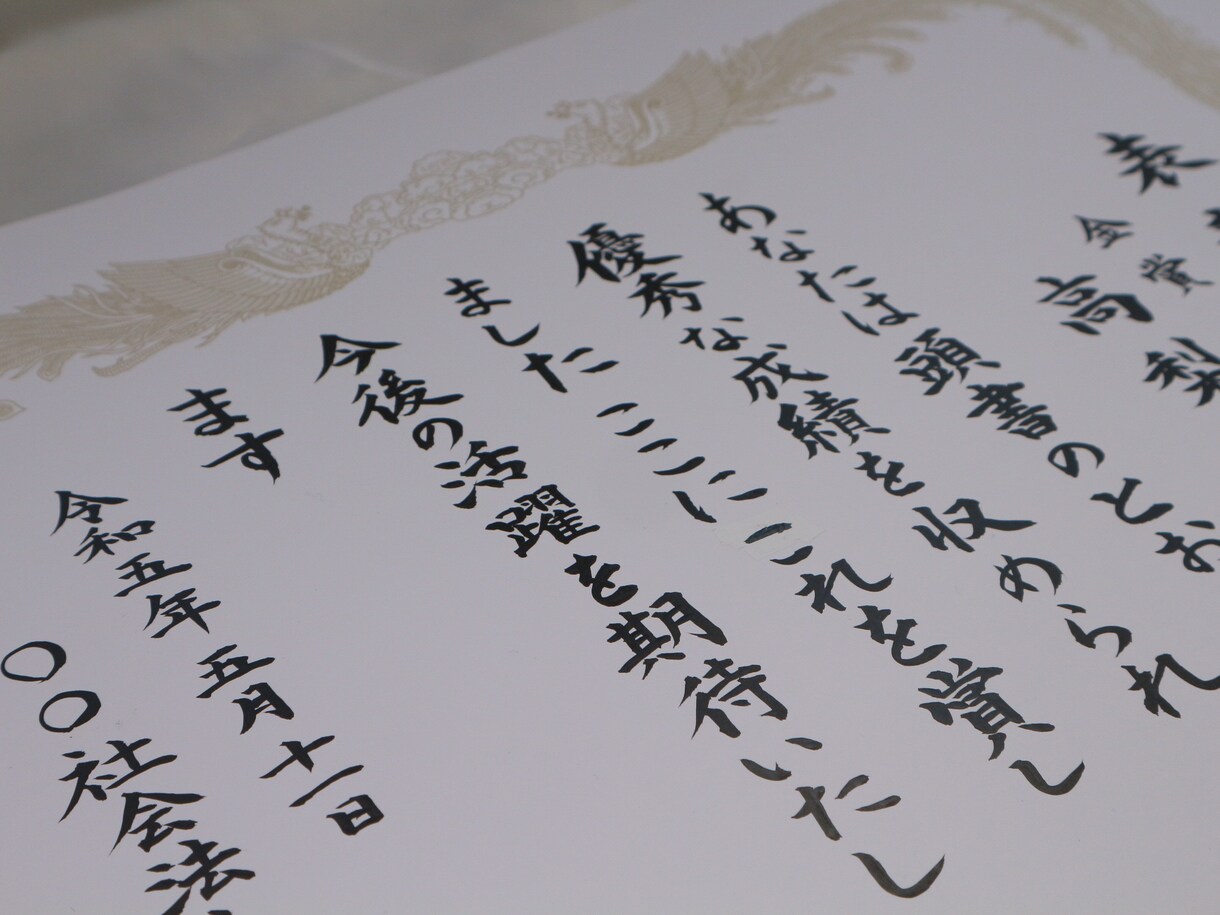 表
金賞
高梨
あなたは頭書のとお
優秀な成績を収められ
ましたここにこれを賞し
今後の活躍を期待いたし
ます
令和五年五月十一日
〇〇社会法